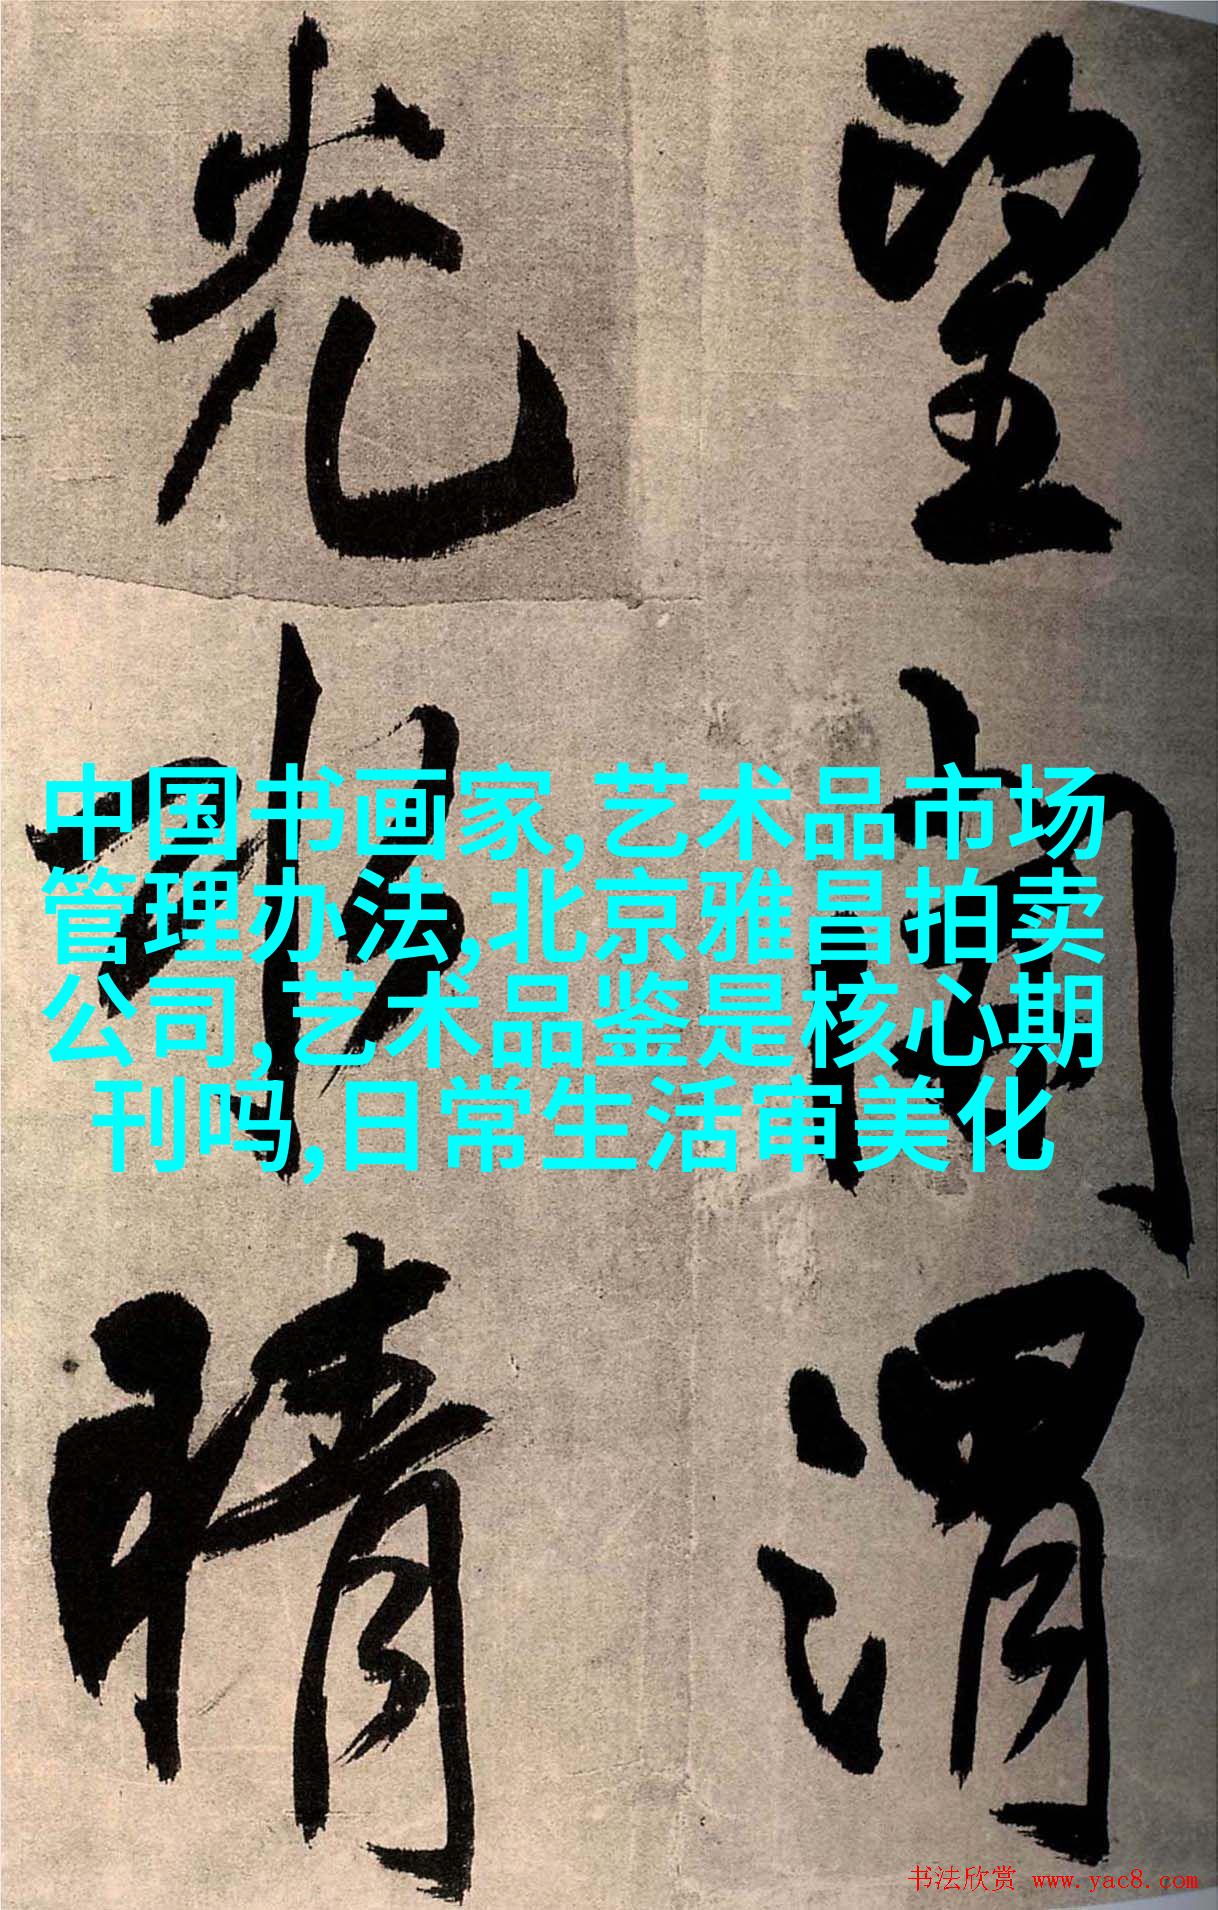 望渭
光水晴
中国书画家,艺术品市场
管理办法,北京雅昌拍卖
公司,艺术品鉴是核心期
刊吗,日常生活审美化
书法欣赏 www.yac8.com